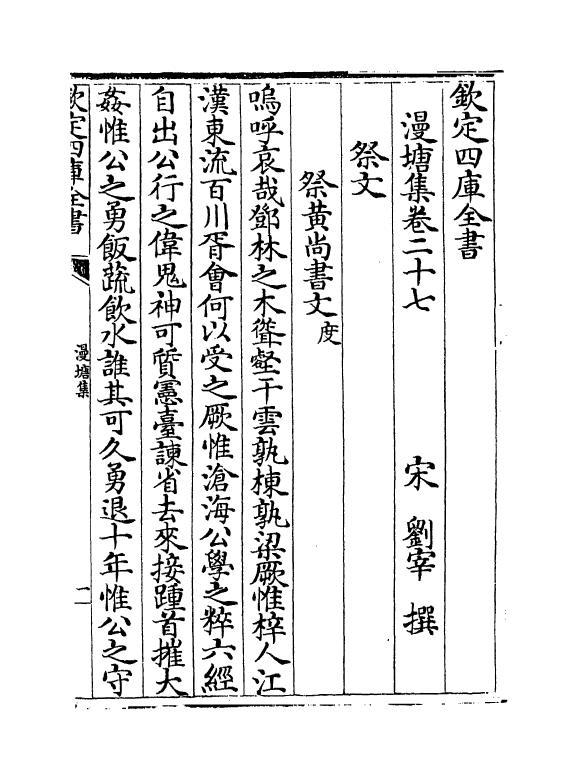 欽定四庫全書
漫塘集卷二十七　宋　劉宰　撰
祭文
祭黃尚書文度
嗚呼哀哉鄧林之木聳壑干雲孰棟孰梁厥惟梓人江
漢東流百川胥會何以受之厥惟滄海公學之粹六經
自出公行之偉鬼神可質憲臺諫省去來接踵首摧大
姦惟公之勇飯蔬飲水誰其可久勇退十年惟公之守
欽定四庫全書
漫塘集